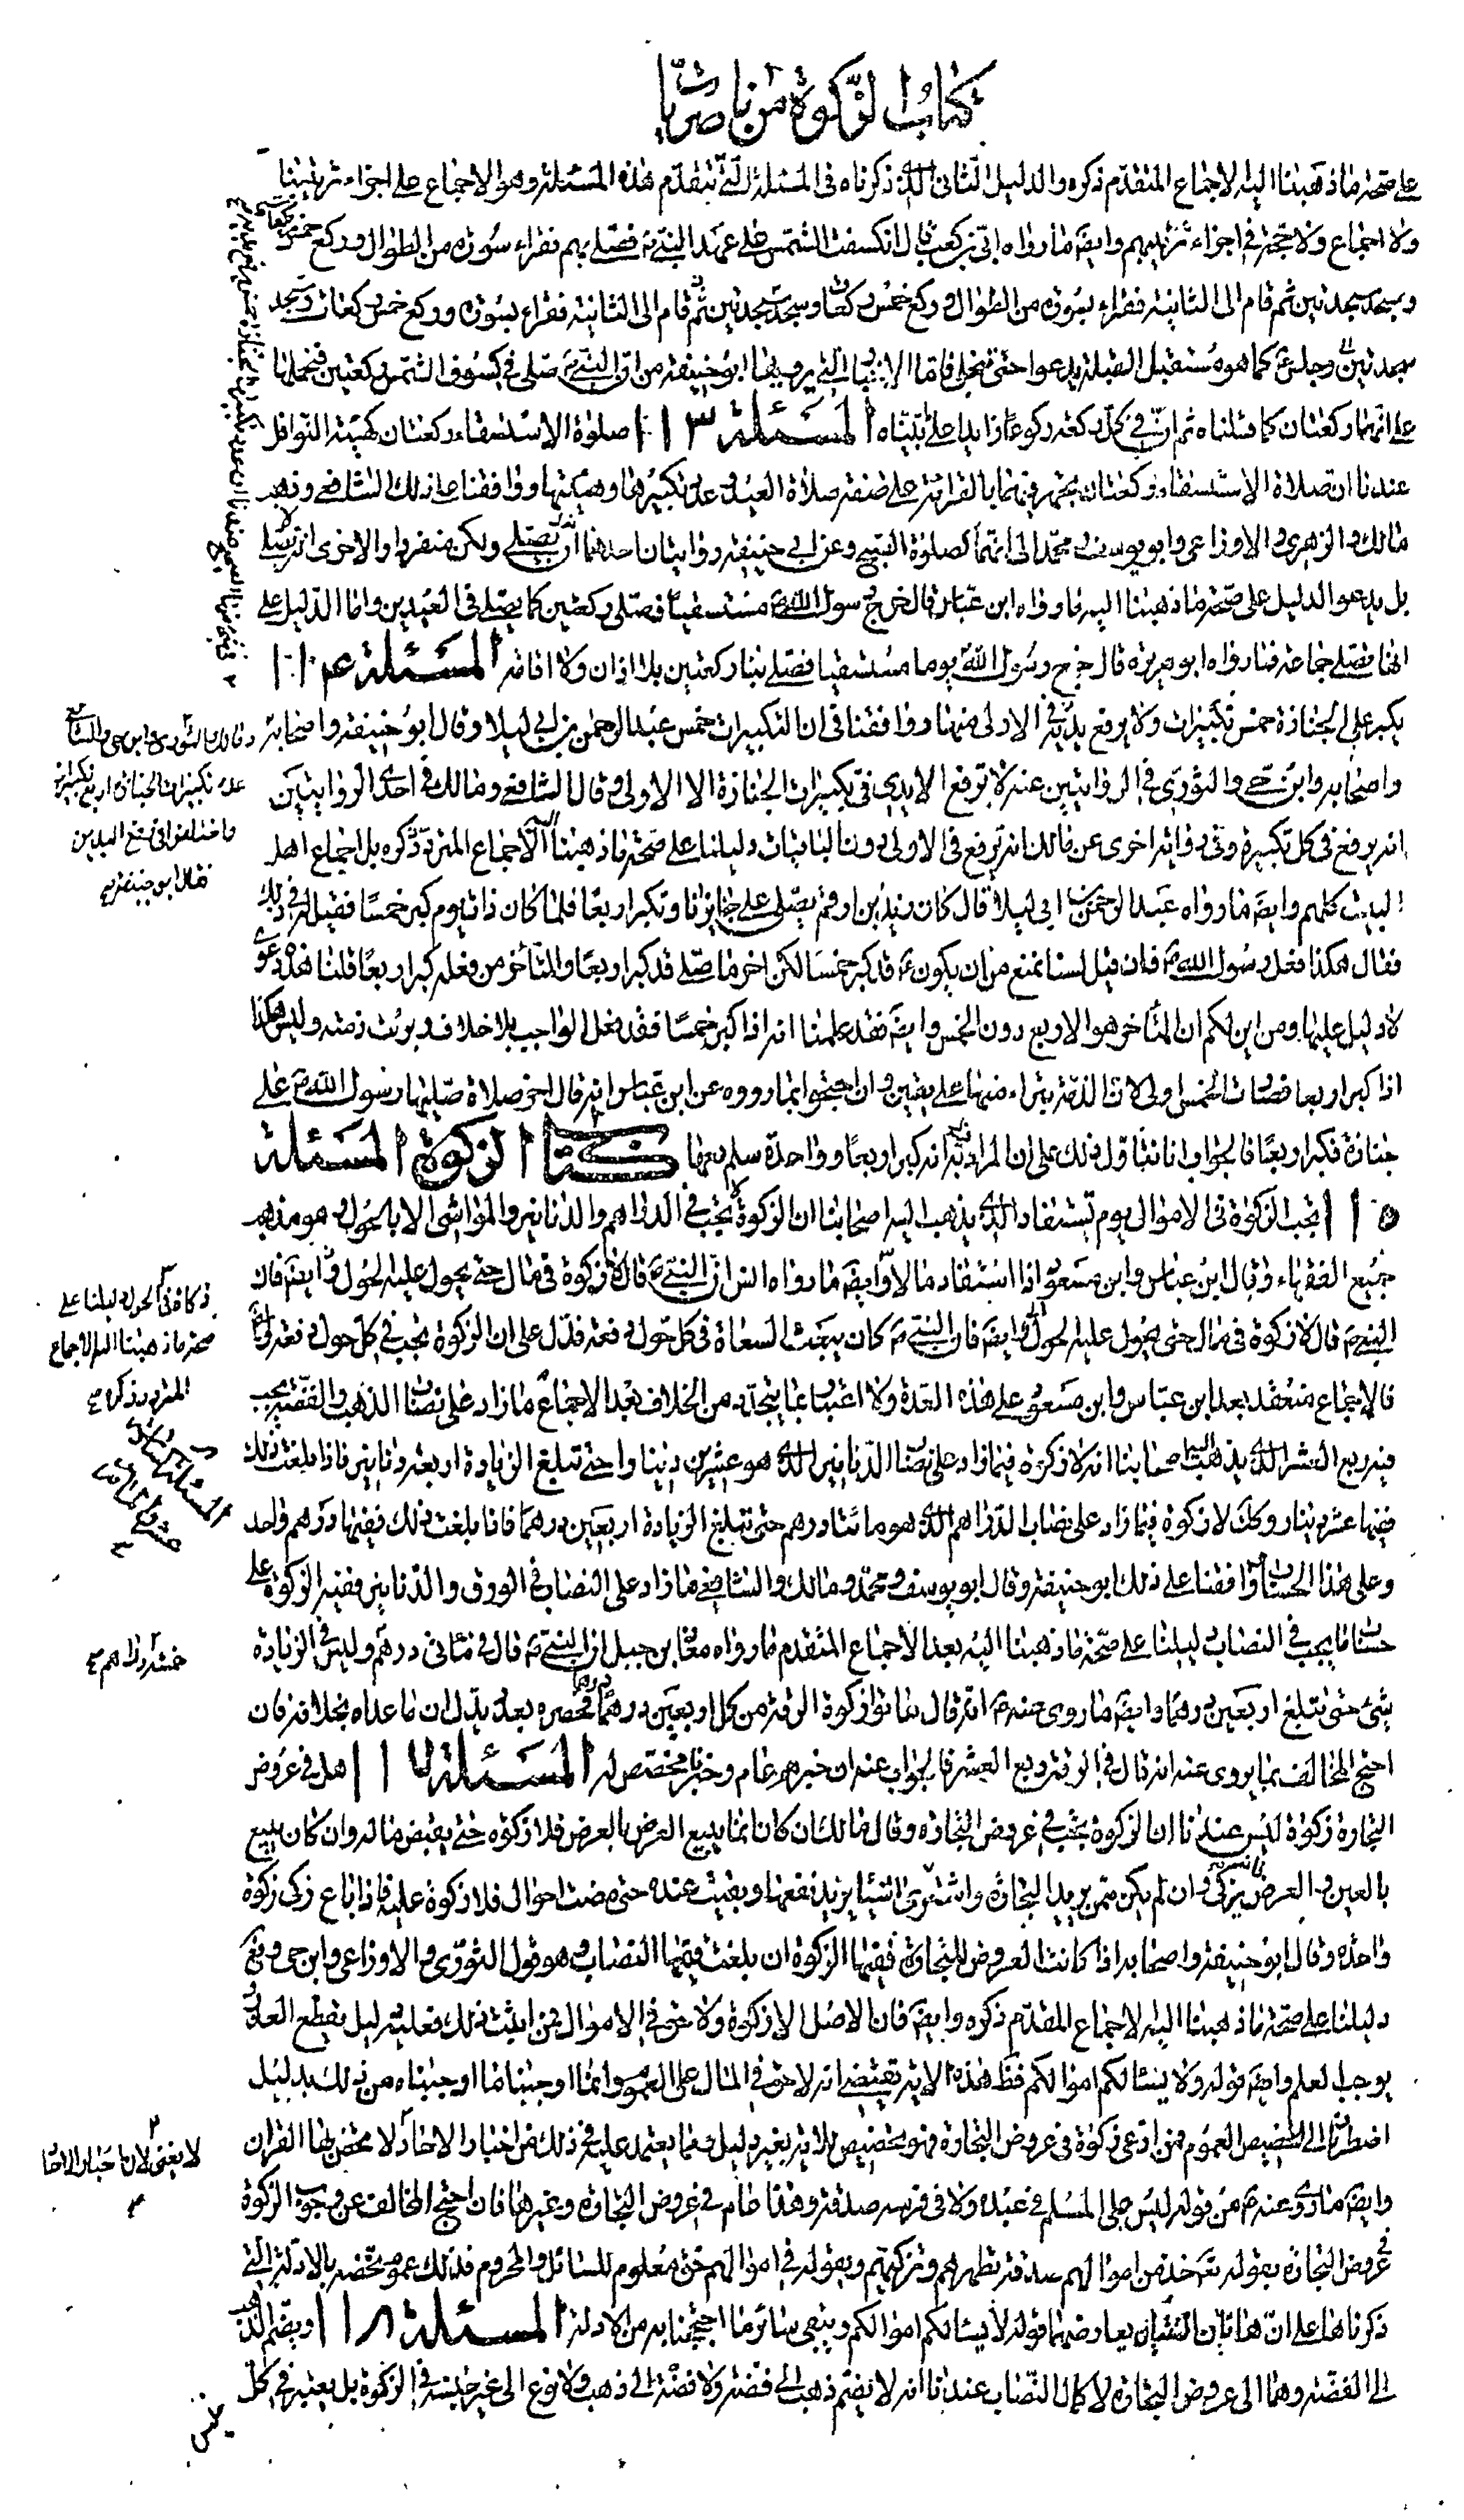 كتاب الزكوة من ناصريات
على صحة ما ذهبنا اليه الاجماع المتقدم ذكره والدليل الثانى الذى ذكرناه فى المسئلة التى تتقدم هذه المسئلة وهو الاجماع على اجزاء ترتيبنا
ولا اجماع ولا حجة فى اجزاء ترتيبهم وايضا ما رواه ابى بن كعب قال انكسفت الشمس على عهد النبى ص فصلى بهم فقراء سورة من الطوال وركع خمس ركعات
وسجد سجدتين ثم قام الى الثانية فقراء بسورة من الطوال وركع خمس ركعات وسجد سجدتين ثم قام الى الثانية فقراء بسورة وركع خمس ركعات وسجد
سجدتين وجلس كما هو مستقبل القبلة يدعوا حتى تنجلى فاما الاخبار التى يرويها ابو حنيفة من ان النبى ص صلى فى كسوف الشمس ركعتين فنحملها
على انهما ركعتان كما قلناه ثم ان فى كل ركعة ركوعا زايدا على ما بيناه المسئلة ١١٣ صلوة الاستسقاء ركعتان كهيئة النوافل
عندنا ان صلاة الاستسقاء ركعتان يجهر فيهما بالقرائة على صفة صلاة العيد وعدد تكبيرها وهيئتها ووافقنا على ذلك الشافعى وذهب
مالك والزهرى والاوزاعى وابو يوسف ومحمد الى انهما كصلوة الصبح وعن ابى حنيفة روايتان احدهما انه يصلى ولكن منفردا والاخرى انه لا يصلى
بل يدعو الدليل على صحة ما ذهبنا اليه ما رواه ابن عباس قال خرج رسول الله ص مستسقيا فصلى ركعتين كما يصلى فى العيدين واما الدليل على
انها تصلى جماعة فما رواه ابو هريرة قال خرج رسول الله ص يوما مستسقيا فصلى بنا ركعتين بلا اذان ولا اقامة المسئلة ١١٤
يكبر على الجنازة خمس تكبيرات ولا يرفع يديه فى الاولى منهما ووافقنا فى ان التكبيرات خمس عبد الرحمن بن ابى ليلا وقال ابو حنيفة واصحابه
وقال مالك والثورى وابن حى والشافعى
عدد تكبيرات الجنازة اربع تكبيرات
واختلفوا فى رفع اليدين
فقال ابو حنيفة
واصحابه وابن حى والثورى فى الروايتين عنه لا ترفع الايدى فى تكبيرات الجنازة الا الاولى وقال الشافعى ومالك فى احدى الروايتين
انه يرفع فى كل تكبيرة وفى رواية اخرى عن مالك انه ترفع فى الاولى دون الباقيات دليلنا على صحة ما ذهبنا اليه الاجماع المتردد ذكره بل اجماع اهل
البيت كلهم وايضا ما رواه عبد الرحمن بن ابى ليلا قال كان زيد بن ارقم يصلى على جنايزنا ويكبر اربعا فلما كان ذات يوم كبر خمسا فقيل له فى ذلك
فقال هكذا فعل رسول الله ص فان قيل لسنا نمنع من ان يكون ع قد كبر خمسا لكن اخر ما صلى قد كبر اربعا والمتأخر من فعله كبر اربعا قلنا هذه دعوى
لا دليل عليها ومن اين لكم ان المتأخر هو الاربع دون الخمس وايضا فقد علمنا انه اذا كبر خمسا فقد فعل الواجب بلا خلاف وبرئت ذمته وليس هكذا
اذا كبر اربعا فصار الخمس اولى لان الذمة يتبراء منها على يقين وان احتجوا بما رووه عن ابن عباس انه قال اخر صلاة صليها رسول الله ص على
جنازة فكبر اربعا فالجواب انا نتأول ذلك على ان المراد به انه كبر اربعا وواحدة سلم بعدها كتاب الزكوة المسئلة
١١٥ تجب الزكوة فى الاموال يوم تستفاد الذى يذهب اليه اصحابنا ان الزكوة لا تجب فى الدراهم والدنانير والمواشى الا بالحول وهو مذهب
جميع الفقهاء وقال ابن عباس وابن مسعود اذا استفاد مالا وايضا ما رواه انس ان النبى ص قال لا زكوة فى مال حتى يحول عليه الحول وايضا فان
زكاة فى الحول دليلنا على
صحة ما ذهبنا اليه الاجماع
المتردد ذكره
النبى ص قال لا زكوة فى مال حتى يحول عليه الحول وايضا فان النبى ص كان يبعث السعاة فى كل حول دفعة فدل على ان الزكوة تجب فى كل حول دفعة وايضا
فالاجماع منعقد بعد ابن عباس وابن مسعود على هذه العدة ولا اعتبار بما يتجدد من الخلاف بعد الاجماع ما زاد على نصاب الذهب والفضة يجب
فيه ربع العشر الذى يذهب اليه اصحابنا انه لا زكوة فيما زاد على نصاب الدنانير الذى هو عشرين دينارا حتى تبلغ الزيادة اربعة دنانير فاذا بلغت ذلك
ففيها عشر دينار وكك لا زكوة فيما زاد على نصاب الدراهم الذى هو مائتا درهم حتى تبلغ الزيادة اربعين درهما فاذا بلغت ذلك ففيها درهم واحد
وعلى هذا الحساب ووافقنا على ذلك ابو حنيفة وقال ابو يوسف ومحمد ومالك والشافعى ما زاد على النصاب فى الورق والدنانير ففيه الزكوة على
حساب ما يجب فى النصاب دليلنا على صحة ما ذهبنا اليه بعد الاجماع المتقدم ما رواه معاذ بن جبل ان النبى ص قال فى مائتى درهم وليس فى الزيادة
خمسة دراهم
شئ حتى تبلغ اربعين درهما وايضا ما روى عنه ص انه قال هاتوا زكوة الرقة من كل اربعين درهما درهما فحصره بعدد يدل ان ما عداه بخلافه فان
احتج المخالف بما يروى عنه انه قال فى الرقة ربع العشر فالجواب عنه ان خبرهم عام وخبرنا مخصص له المسئلة ١١٧ هل فى عروض
التجارة زكوة ليس عندنا ان الزكوة تجب فى عروض التجارة وقال مالك ان كان انما يبيع العرض بالعرض فلا زكوة حتى يقبض ماله وان كان يبيع
بالعين والعرض يزكى وان لم يكن ممن يريد التجارة واشترى اشيا يريد نفعها وبقيت عنده حتى مضت احوال فلا زكوة عليه فاذا باع زكى زكوة
واحدة وقال ابو حنيفة واصحابه اذا كانت العروض للتجارة ففيها الزكوة ان بلغت قيمتها النصاب وهو قول الثورى والاوزاعى وابن حى وفع
دليلنا على صحة ما ذهبنا اليه الاجماع المقدم ذكره وايضا فان الاصل الا زكوة ولا حق فى الاموال فمن اثبت ذلك فعليه دليل يقطع العذر
يوجب العلم وايضا قوله ولا يسئالكم اموالكم فظ هذه الاية تقتضى انه لا حق فى المال على العموم وانما اوجبنا ما اوجبناه من ذلك بدليل
اضطرنا الى تخصيص العموم فمن ادعى زكوة فى عروض التجارة فهو تخصيص للاية بغير دليل وما يعتمد عليه فى ذلك من اخبار الاحاد لا يخص بها القران
لا يغنى لان اخبار الاحاد
وايضا ما روى عنه ص من قوله ليس على المسلم فى عبده ولا فى فرسه صدقة وهذا عام فى عروض التجارة وغيرها فان احتج المخالف عن وجوب الزكوة
فى عروض التجارة بقوله تع خذ من اموالهم صدقة تطهرهم وتزكيهم وبقوله فى اموالهم حق معلوم للسائل والمحروم فذلك عموم نخصه بالادلة التى
ذكرناها على ان هاتان الايتان يعارضهما قوله لا يسئالكم اموالكم ويبقى سائر ما احتججنا به من الادلة المسئلة ١١٨ ويضم الذهب
الى الفضة وهما الى عروض التجارة لاكمال النصاب عندنا انه لا يضم ذهب الى فضة ولا فضة الى ذهب ولا نوع الى غير جنسه فى الزكوة بل يعتبر فى كل
جنس